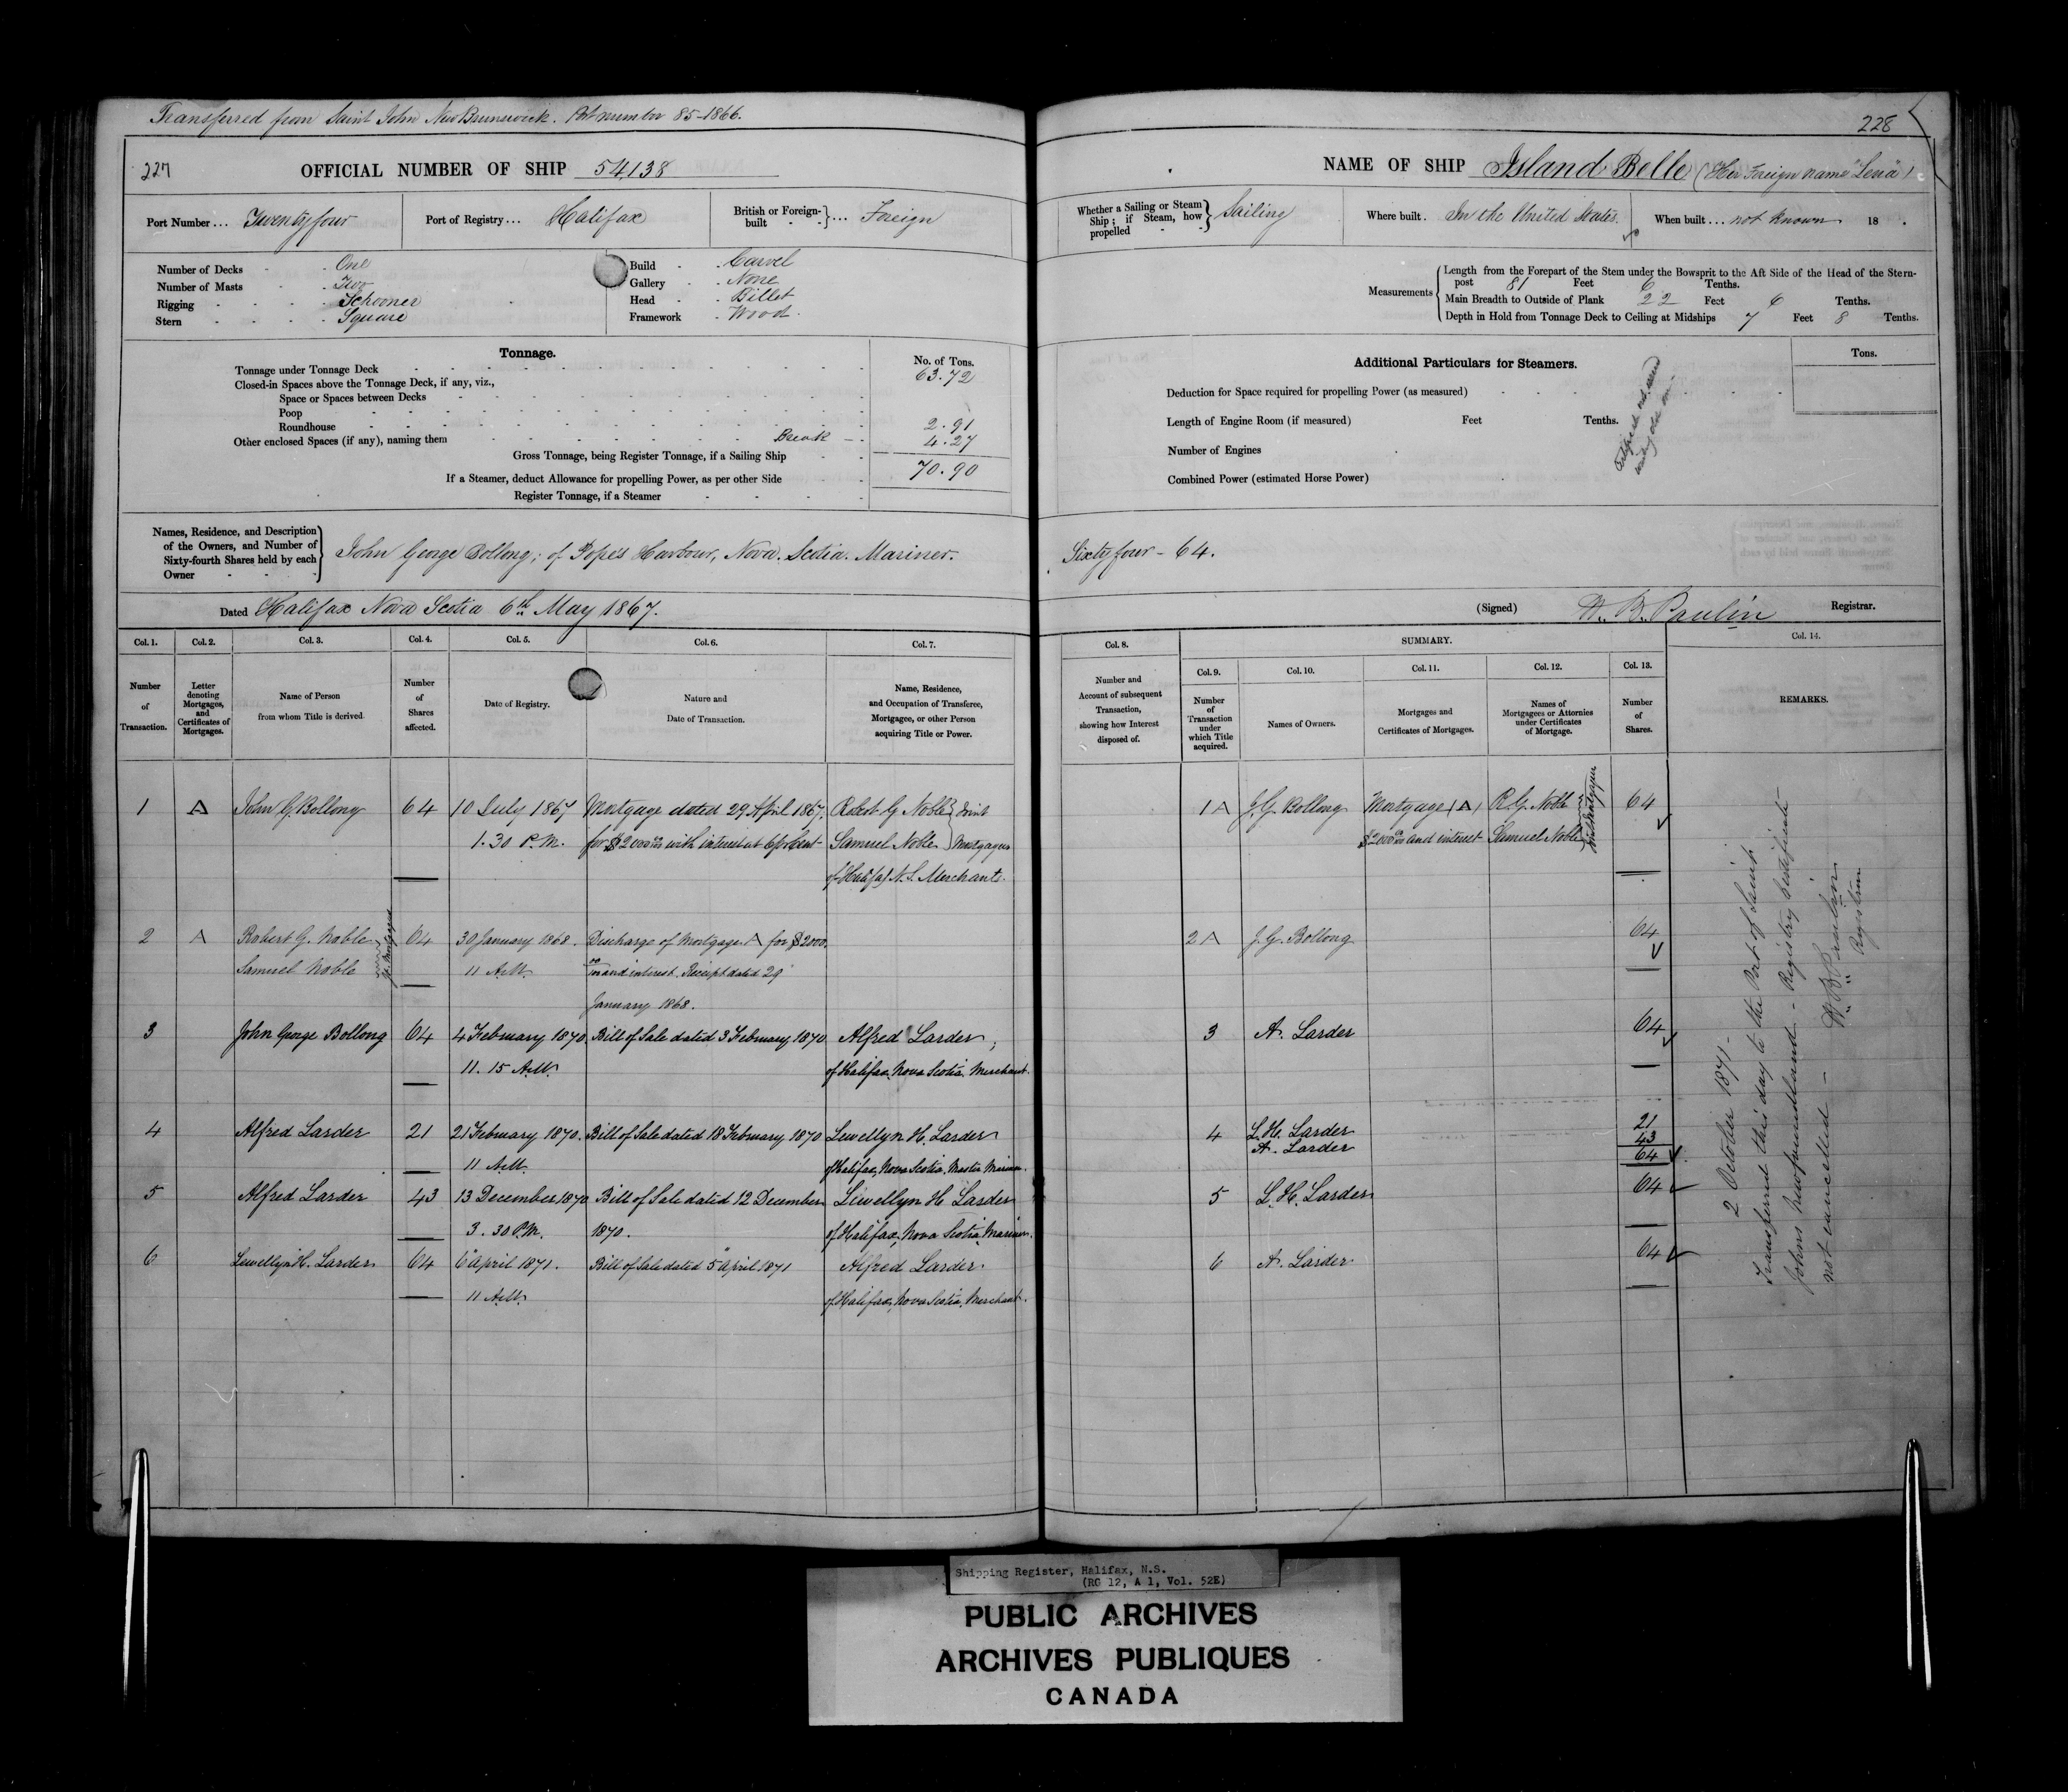 Transferred from Saint John New Brunswick. Port number 85-1866.
227
OFFICIAL NUMBER OF SHIP 54,138
Port Number ... Twenty four
Port of Registry ... Halifax
British or Foreign-built } ... Foreign
Number of Decks One
Number of Masts Two
Rigging Schooner
Stern Square
Build Carvel
Gallery None
Head Billet
Framework Wood.
Tonnage.
No. of Tons.
Tonnage under Tonnage Deck 63.72
Closed-in Spaces above the Tonnage Deck, if any, viz.,
Space or Spaces between Decks
Poop
Roundhouse 2.91
Other enclosed Spaces (if any), naming them Break 4.27
Gross Tonnage, being Register Tonnage, if a Sailing Ship 70.90
If a Steamer, deduct Allowance for propelling Power, as per other Side
Register Tonnage, if a Steamer
Names, Residence, and Description
of the Owners, and Number of
Sixty-fourth Shares held by each
Owner
John George Bollong; of Popes Harbour, Nova Scotia. Mariner.
Dated Halifax Nova Scotia 6th May 1867.
Col. 1. Col. 2. Col. 3. Col. 4. Col. 5. Col. 6. Col. 7.
Number of Transaction.
Letter denoting Mortgages, and Certificates of Mortgages.
Name of Person from whom Title is derived
Number of Shares affected.
Date of Registry.
Nature and Date of Transaction.
Name, Residence, and Occupation of Transferee, Mortgagee, or other Person acquiring Title or Power.
1 A John G. Bollong 64 10 July 1867 Mortgage dated 29 April 1867. Robert G Noble } Joint
1.30 P.M. for $2000 with interest at 6 pr Cent Samuel Noble } Mortgagees
of Halifax N.S. Merchants.
2 A Robert G. Noble 64 30 January 1868. Discharge of Mortgage A for $2000.
Samuel Noble 11 A.M. and interest. Receipt dated 29
January 1868.
3 John George Bollong 64 4 February 1870 Bill of Sale dated 3 February 1870 Alfred Larder,
11.15 A.M. of Halifax, Nova Scotia, Merchant.
4 Alfred Larder 21 21 February 1870. Bill of Sale dated 18 February 1870 Lewellyn H. Larder
11 A.M. of Halifax, Nova Scotia, Master Mariner.
5 Alfred Larder 43 13 December 1870 Bill of Sale dated 12 December Lewellyn H Larder
3.30 P.M. 1870. of Halifax, Nova Scotia, Mariner.
6 Lewellyn H. Larder 64 6 April 1871. Bill of Sale dated 5 April 1871 Alfred Larder.
11 A.M. of Halifax, Nova Scotia, Merchant.
228
NAME OF SHIP Island Belle (Her Foreign name "Lena")
Whether a Sailing or Steam Ship; if Steam, how propelled } Sailing
Where built. In the United States.
When built ... not known 18 .
Measurements
Length from the Forepart of the Stem under the Bowsprit to the Aft Side of the Head of the Stern-
post 81 Feet 6 Tenths.
Main Breadth to Outside of Plank 22 Feet 6 Tenths.
Depth in Hold from Tonnage Deck to Ceiling at Midships 7 Feet 8 Tenths.
Additional Particulars for Steamers.
Tons.
Deduction for Space required for propelling Power (as measured)
Length of Engine Room (if measured) Feet Tenths.
Number of Engines
Combined Power (estimated Horse Power)
Sixty four - 64.
(Signed) W. B. Paulin Registrar.
SUMMARY.
Col. 8. Col. 9. Col. 10. Col. 11. Col. 12. Col. 13. Col. 14.
Number and Account of subsequent Transaction, showing how Interest disposed of.
Number of Transaction under which Title acquired.
Names of Owners.
Mortgages and Certificates of Mortgages.
Names of Mortgagees or Attornies under Certificates of Mortgage.
Number of Shares.
REMARKS.
1 A J. G. Bollong Mortgage (A) R. G. Noble 64
$2000 and interest Samuel Noble
2 A J. G. Bollong 64
3 A. Larder 64
4 L. H. Larder 21
A. Larder 43
64
5 L. H. Larder 64
6 A. Larder 64
2 October 1871 -
Transferred this day to the Port of Saint
Johns Newfoundland - Registry Certificate
not cancelled -
W. B. Paulin
Registrar
Shipping Register, Halifax, N.S.
(RG 12, A 1, Vol. 52E)
PUBLIC ARCHIVES
ARCHIVES PUBLIQUES
CANADA